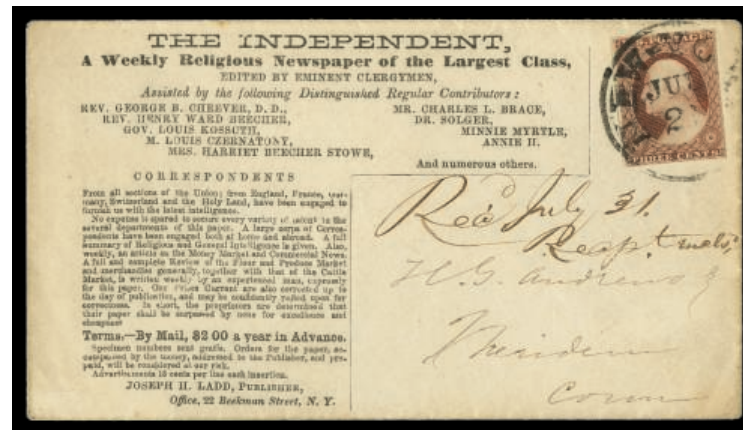 THE INDEPENDENT,
A Weekly Religious Newspaper of the Largest Class,
EDITED BY EMINENT CLERGYMEN,
Assisted by the following Distinguished Regular Contributors:
REV. GEORGE B. CHEEVER, D. D.,
REV. HENRY WARD BEECHER,
GOV. LOUIS KOSSUTH,
M. LOUIS CZERNATONY,
MRS. HARRIET BEECHER STOWE,
MR. CHARLES L. BRACE,
DR. SOLGER,
MINNIE MYRTLE,
ANNIE H.
And numerous others.
CORRESPONDENTS
From all sections of the Union; from England, France, Ger-
many, Switzerland and the Holy Land, have been engaged to
furnish us with the latest intelligence.
No expense is spared to secure every variety of talent in the
several departments of this paper. A large corps of Corres-
pondents have been engaged both at home and abroad. A full
summary of Religious and General Intelligence is given. Also,
weekly, an article on the Money Market and Commercial News.
A full and complete Review of the Flour and Produce Market
and merchandise generally, together with that of the Cattle
Market, is written weekly by an experienced man, expressly
for this paper. Our Prices Current are also corrected up to
the day of publication, and may be confidently relied upon for
correctness. In short, the proprietors are determined that
their paper shall be surpassed by none for excellence and
cheapness
Terms.—By Mail, $2 00 a year in Advance.
Specimen numbers sent gratis. Orders for the paper, ac-
companied by the money, addressed to the Publisher, and pre-
paid, will be considered at our risk.
Advertisements 15 cents per line each insertion.
JOSEPH H. LADD, PUBLISHER,
Office, 22 Beekman Street, N. Y.
THREE CENTS
JUL
2
Rec'd July 31.
H.G. Andrews
Meriden
Conn